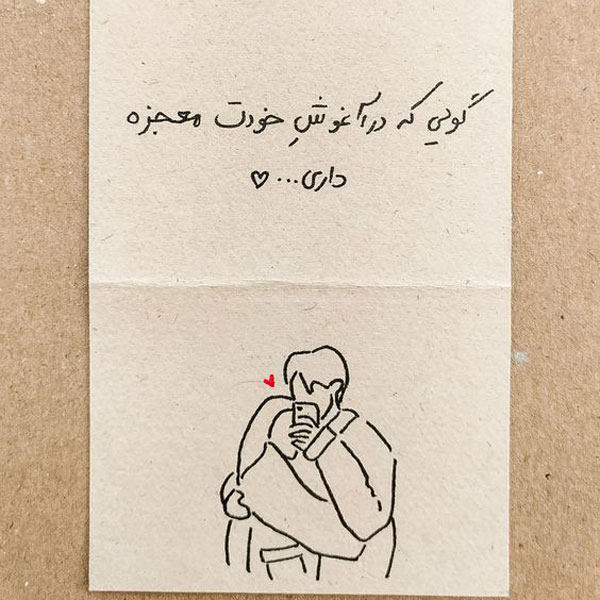 گویی که در آغوشِ خودت معجزه
داری...♡